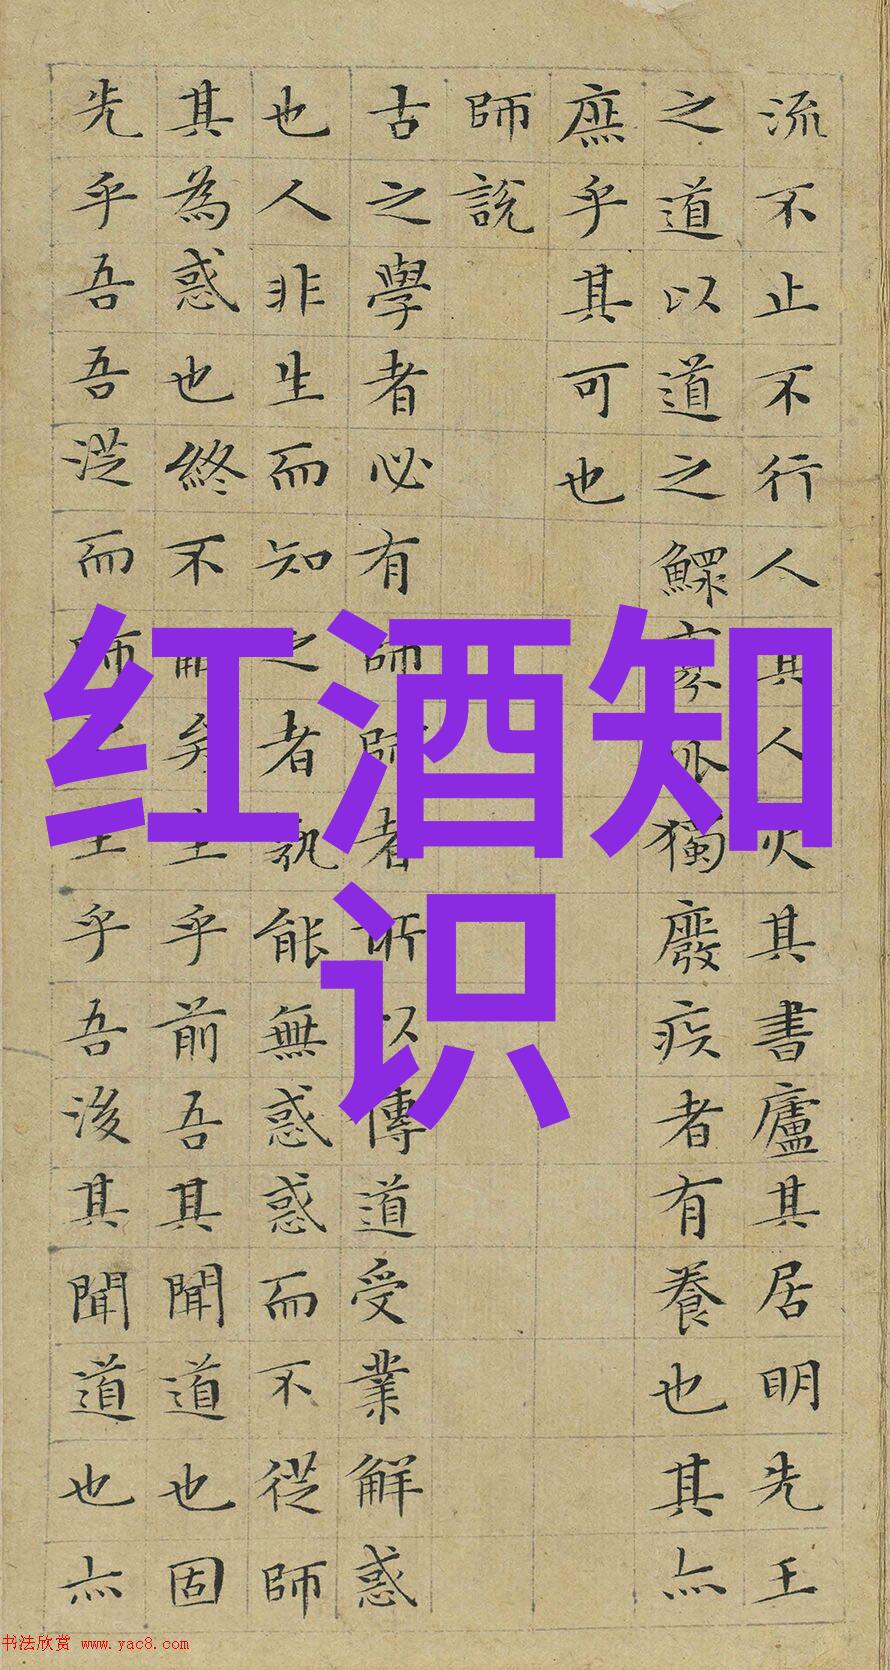 流不止不行人其人火其書廬其居明先王
之道以道之鰥寡孤獨廢疾者有養也其亦
庶乎其可也
師說
古之學者必有師師者所以傳道受業解惑
也人非生而知之者孰能無惑惑而不從師
其為惑也終不解矣生乎前吾其聞道也固
先乎吾吾從而師生乎吾後其聞道也亦
红酒知
识
书法欣赏 www.yac8.com